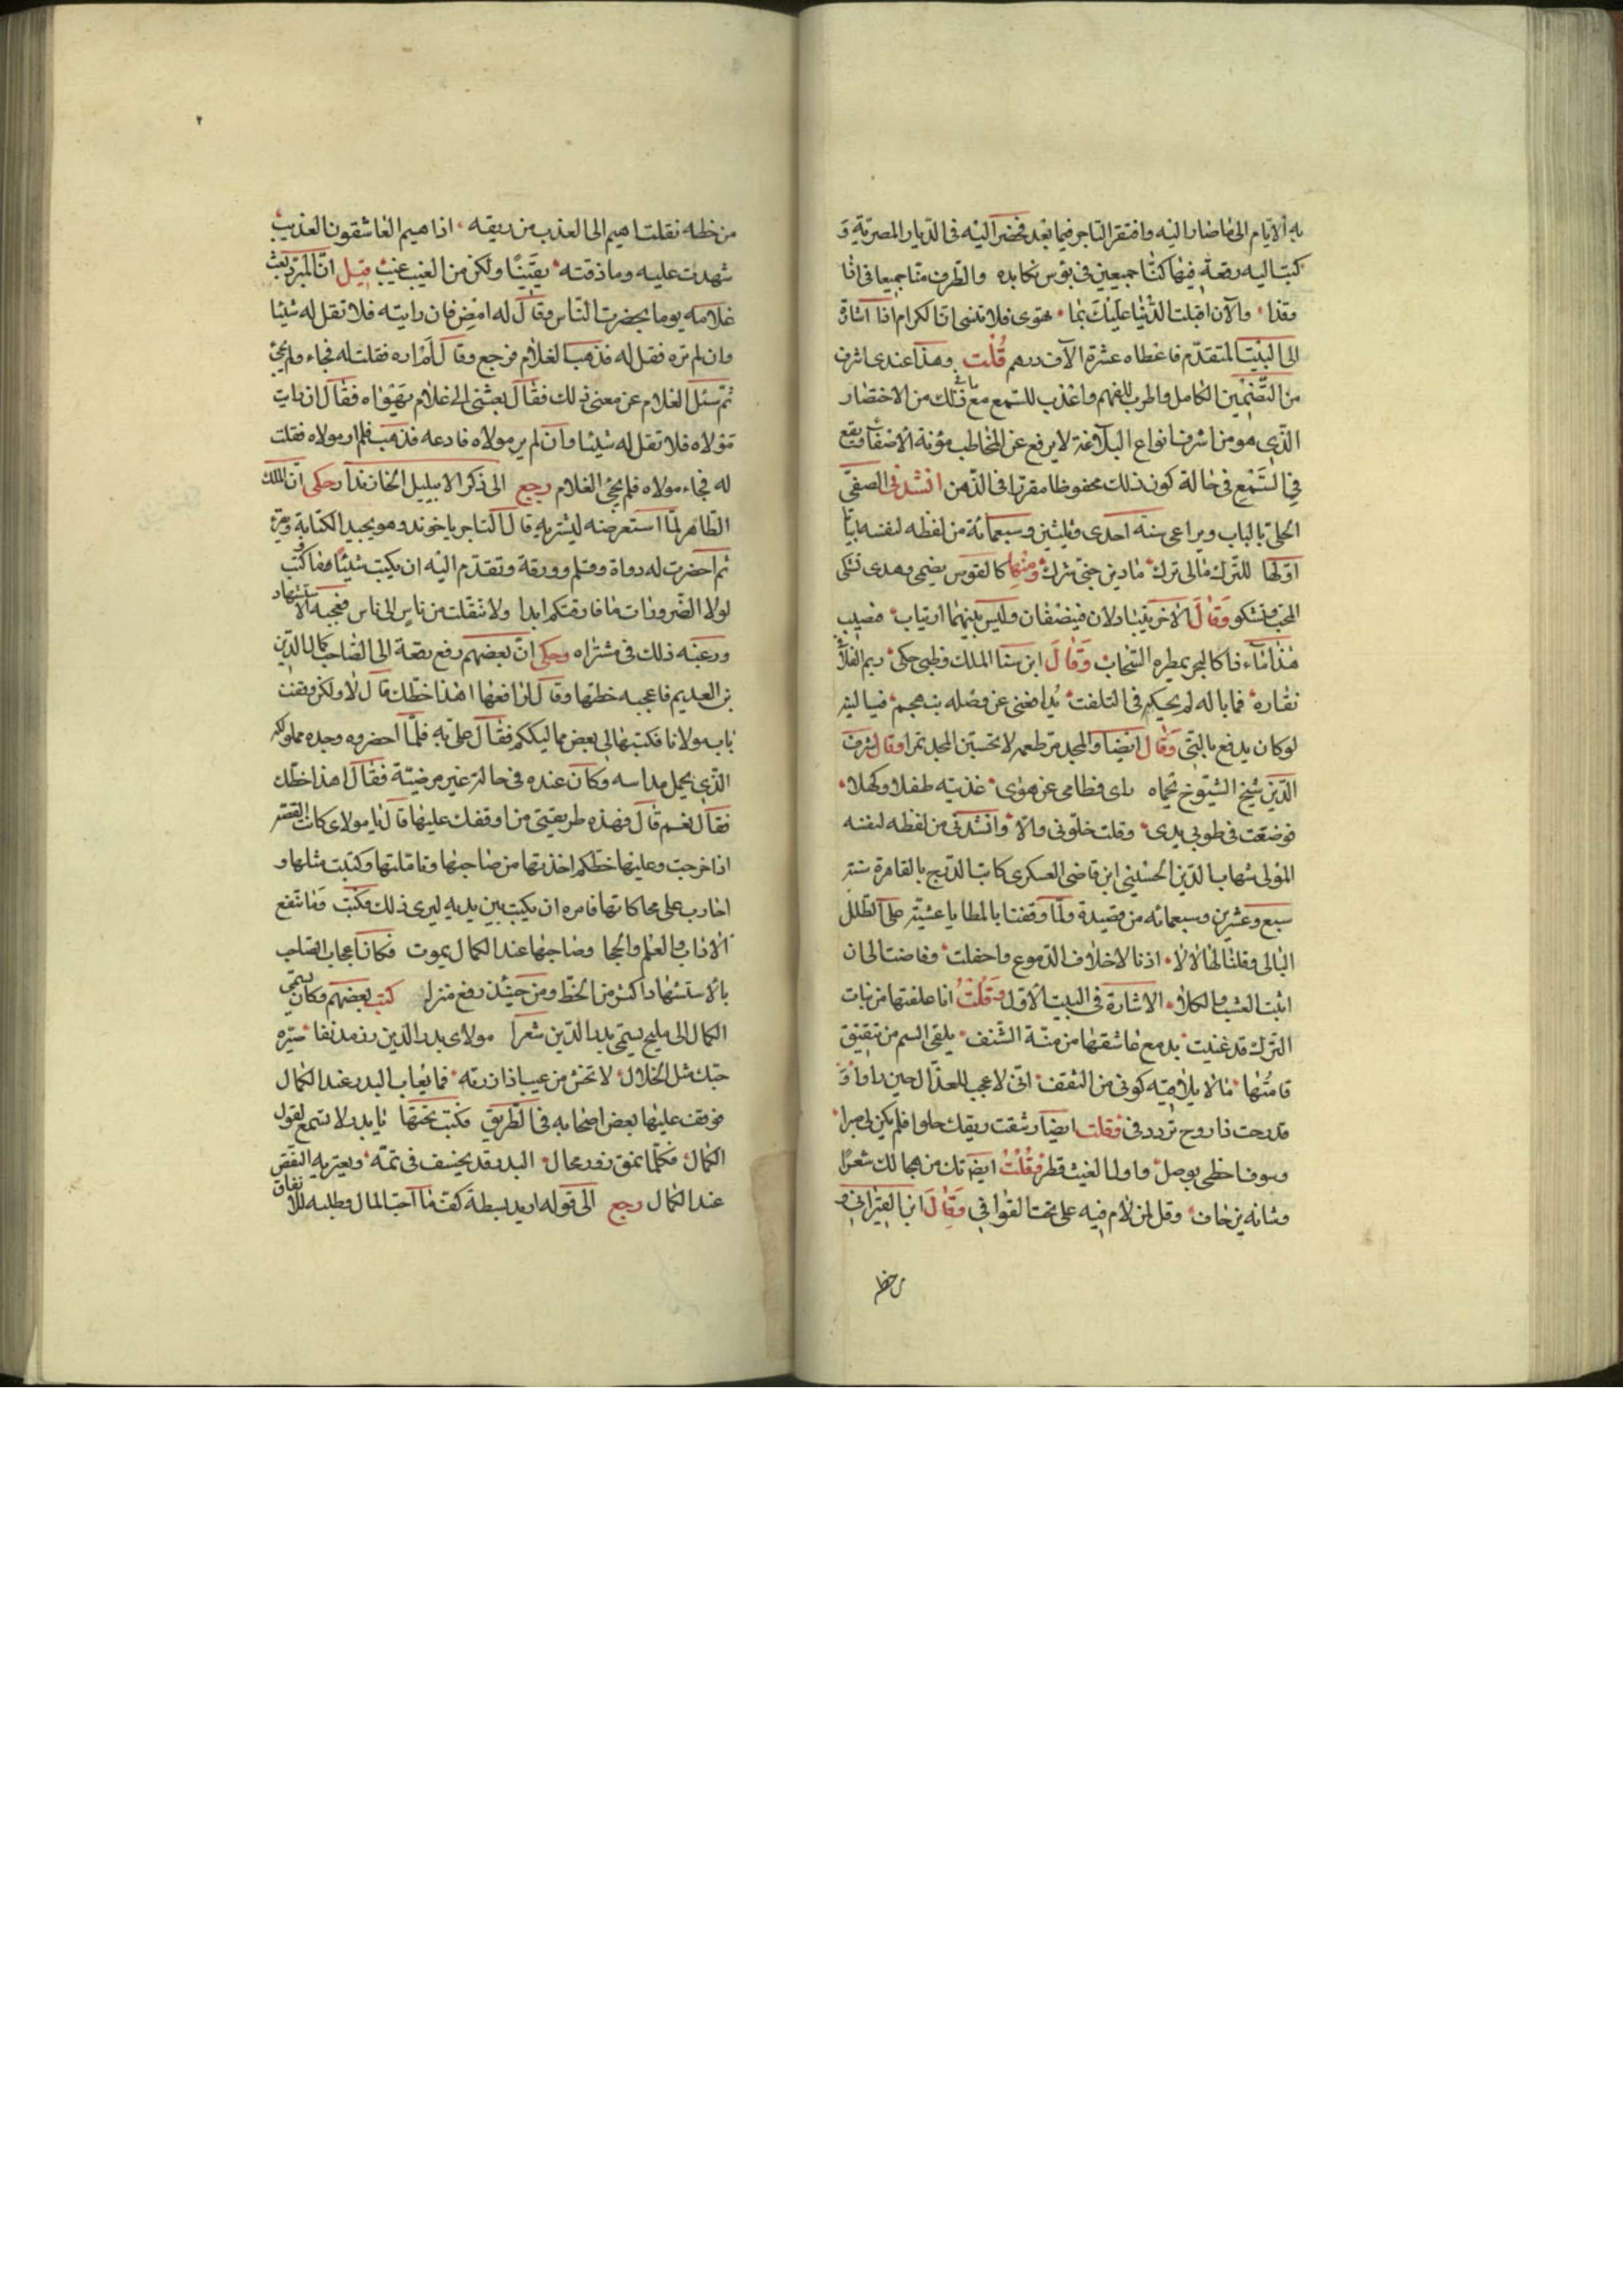 به الايام الى ما صار اليه وافتقر التاجر فيما بعد فحضر اليه فى الديار المصرية و
كتب اليه رقعة فيها كنا جميعين فى بؤس نكابده والطرف منا جميعا فى اذا
وقذا والآن اقبلت الدنيا عليك بما تهوى فلا تنسى ان الكرام اذا اشارة
الى البيت المتقدم فاعطاه عشرة الآف درهم قلت وهذا عندى اشرف
من التضمين الكامل واطرب للفهم واعذب للسمع مع ما فى ذلك من الاختصار
الذى هو من اشرف انواع البلاغة لا يرفع عن المخاطب مؤنة الاصغاء
فى السمع فى حالة كون ذلك محفوظا مقررا فى الذهن انشدنى الصفى
الحلى بالباب وبزاعى سنة احدى وثلثين وسبعمائة من لفظه لنفسه
اولها للترك مالى ترك ما دين حبى شرك ومنها كالقوس يصمى وهدى تشكى
المحب وتشكو وقال الاخر بيننا فينصفان وليس بينهما ارتياب
هذا ماء ذا كالبحر يمطره السحاب وقال ابن سنا الملك وظبى حكى ريم الفلاة
نفاره فما باله لم يحكه فى التلفت
لوكان يدفع بالتى وقال ايضا والمجد مر طعمه لا تحسبن المجد تمرا وقال شرف
الدين شيخ الشيوخ بحماه راى فطامى عن هوى غذيته طفلا وكهلا
فوضعت فى طوبى يدى وقلت خلونى والا وانشدنى من لفظه لنفسه
المولى شهاب الدين الحسينى ابن قاضى العسكرى كاتب الدرج بالقاهرة سنة
سبع وعشرين وسبعمائه من قصيدة ولما وقفنا بالمطايا عشية على الطلل
البالى وقلنا لها الالا اذنا لاخلاف الدموع واحفلت وفاضت الى ان
انبت العشب والكلا الاشارة فى البيت الاول وقلت انا علقتها من بنات
الترك قد غنيت بدمع عاشقها من منة الشنف يلقى السم من تثقيف
قامتها ما لا يلاقيه كوفى من الثقف انى لاعجب للعذال حين راوا و
قد رحت ذا روح تردد فى وقلت ايضا رشفت ريقك حلوا فلم يكن لى صبرا
وسوف احظى بوصل واول الغيث قطر وقلت ايضا شعرا
وقل لمن لام فيه على نحت القوافى وقال ابن القيرانى و
من خطه
من خطه نقلت اهيم الى العذب من ريقه اذا هيم العاشقون العذيب
شهدت عليه وما ذقته يقينا ولكن من الغيب غيب قيل ان المبرد بعث
غلامه يوما بحضرت الناس وقال له امض فان رايته فلا تقل له شيئا
وان لم تره فقل له فذهب الغلام فرجع وقال لم اره فقلت له فجاء ولم يجئ
ثم سئل الغلام عن معنى ذلك فقال بعثنى الى غلام يهواه فقال ان رايت
مولاه فلا تقل له شيئا وان لم ير مولاه فادعه فذهب فلم ار مولاه فقلت
له فجاء مولاه فلم يجئ الغلام رجع الى ذكر الامير بيليك الخازندار حكى ان الملك
الظاهر لما استعرضه ليشتريه قال التاجر يا خوند وهو يجيد الكتابة وقر
ثم احضرت له دواة وقلم وورقة وتقدم اليه ان يكتب شيئا فكتب
لولا الضرورات ما فارقتكم ابدا ولا تنقلت من ناس الى ناس فعجبه الاستشهاد
ورغبه ذلك فى مشتراه وحكى ان بعضهم رفع رقعة الى الصاحب كمال الدين
بن العديم فاعجبه خطها وقال لرافعها اهذا خطك قال لا ولكن وقفت
باب مولانا فكتبها لى بعض مماليككم فقال على به فلما احضروه وجده مملوكه
الذى يحمل مداسه وكان عنده فى حالة غير مرضية فقال اهذا خطك
فقال نعم قال فهذه طريقتى من اوقفك عليها قال يا مولاى كانت القصة
اذا خرجت وعليها خطكم اخذتها من صاحبها وتاملتها وكتبت مثلها و
اضارب على محاكاتها فامره ان يكتب بين يديه ليرى ذلك فكتب وما تنفع
الاداب والعلم والحجا وصاحبها عند الكمال يموت فكان اعجاب الصاحب
بالاستشهاد اكثر من الخط ومن حينئذ رفع منزله كتب بعضهم وكان يسمى
الكمال الى مليح يسمى بدر الدين شعرا مولاى بدر الدين زر مدنفا صيره
حبك مثل الخلال لا تخش من عيب اذا زرته فما يعاب البدر عند الكمال
فوقف عليها بعض اصحابه فى الطريق فكتب تحتها يا بدر لا تسمع لقول
الكمال فكلما نمق زور محال البدر قد يخسف فى تمه ويعتريه النقص
عند الكمال رجع الى قوله اريد بسطة كف ما احب المال وطلبه الا لانفاق